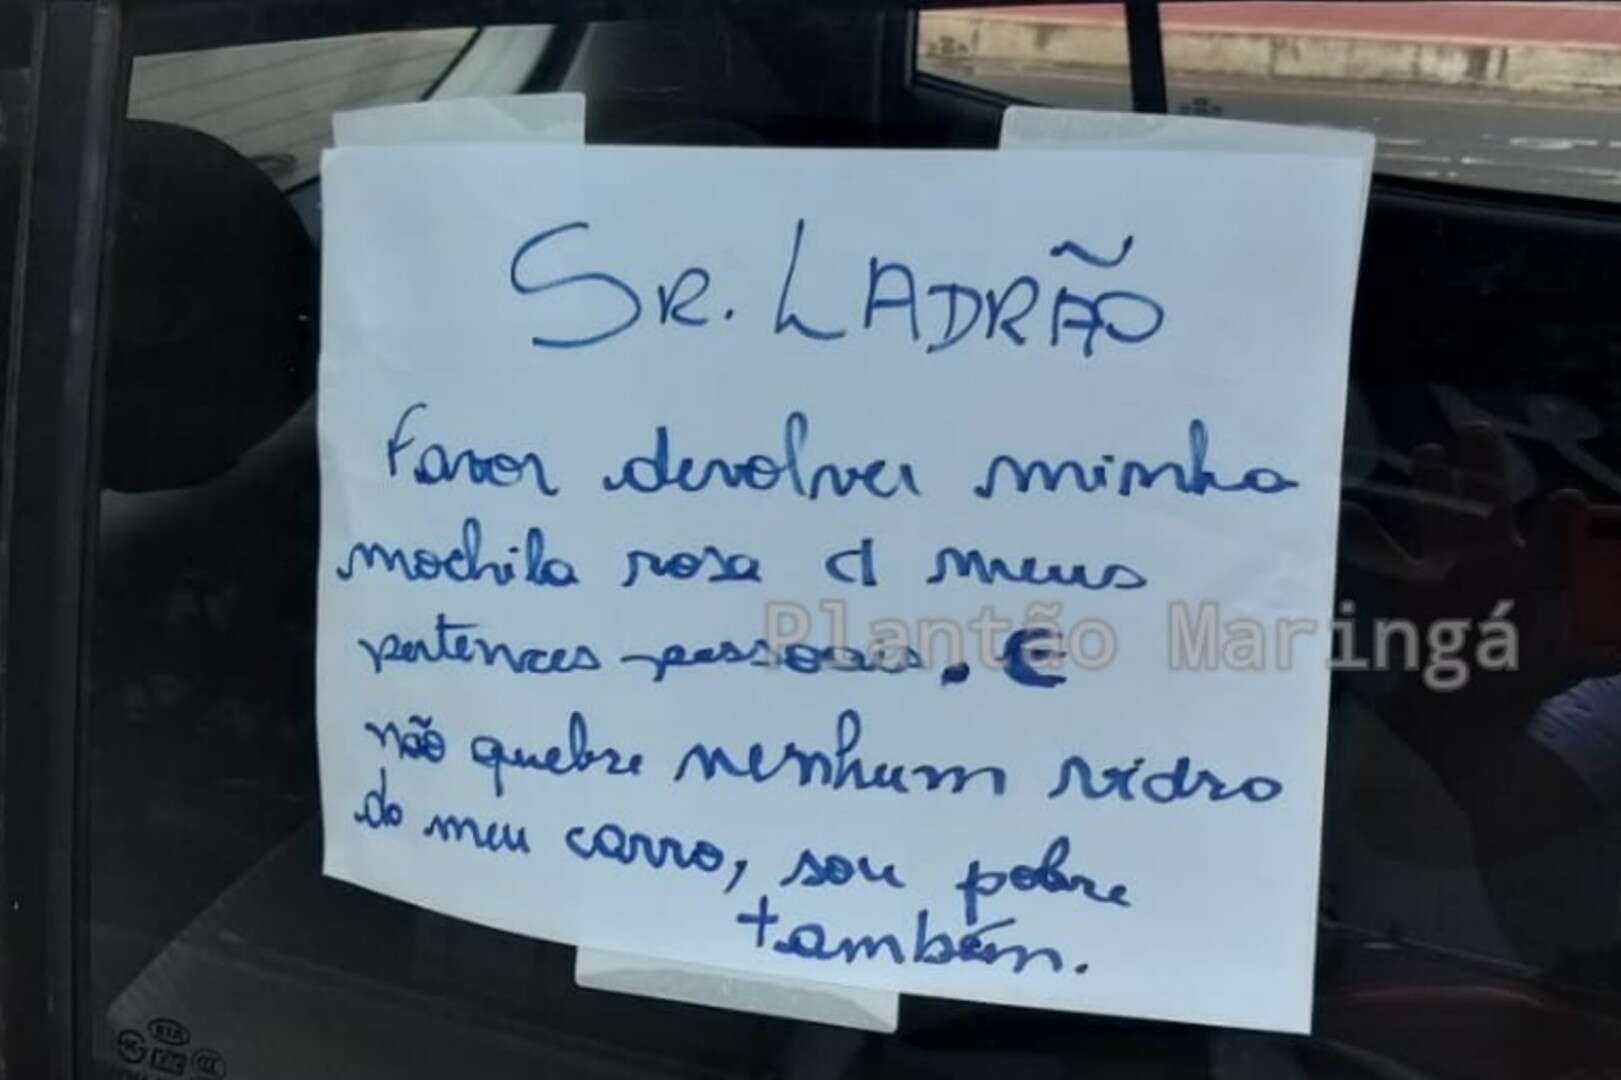 SR. LADRÃO
Favor devolver minha
mochila rosa c/ meus
pertences pessoais. E
Plantão Maringá
não quebre nenhum vidro
do meu carro, sou pobre
também.
KIA